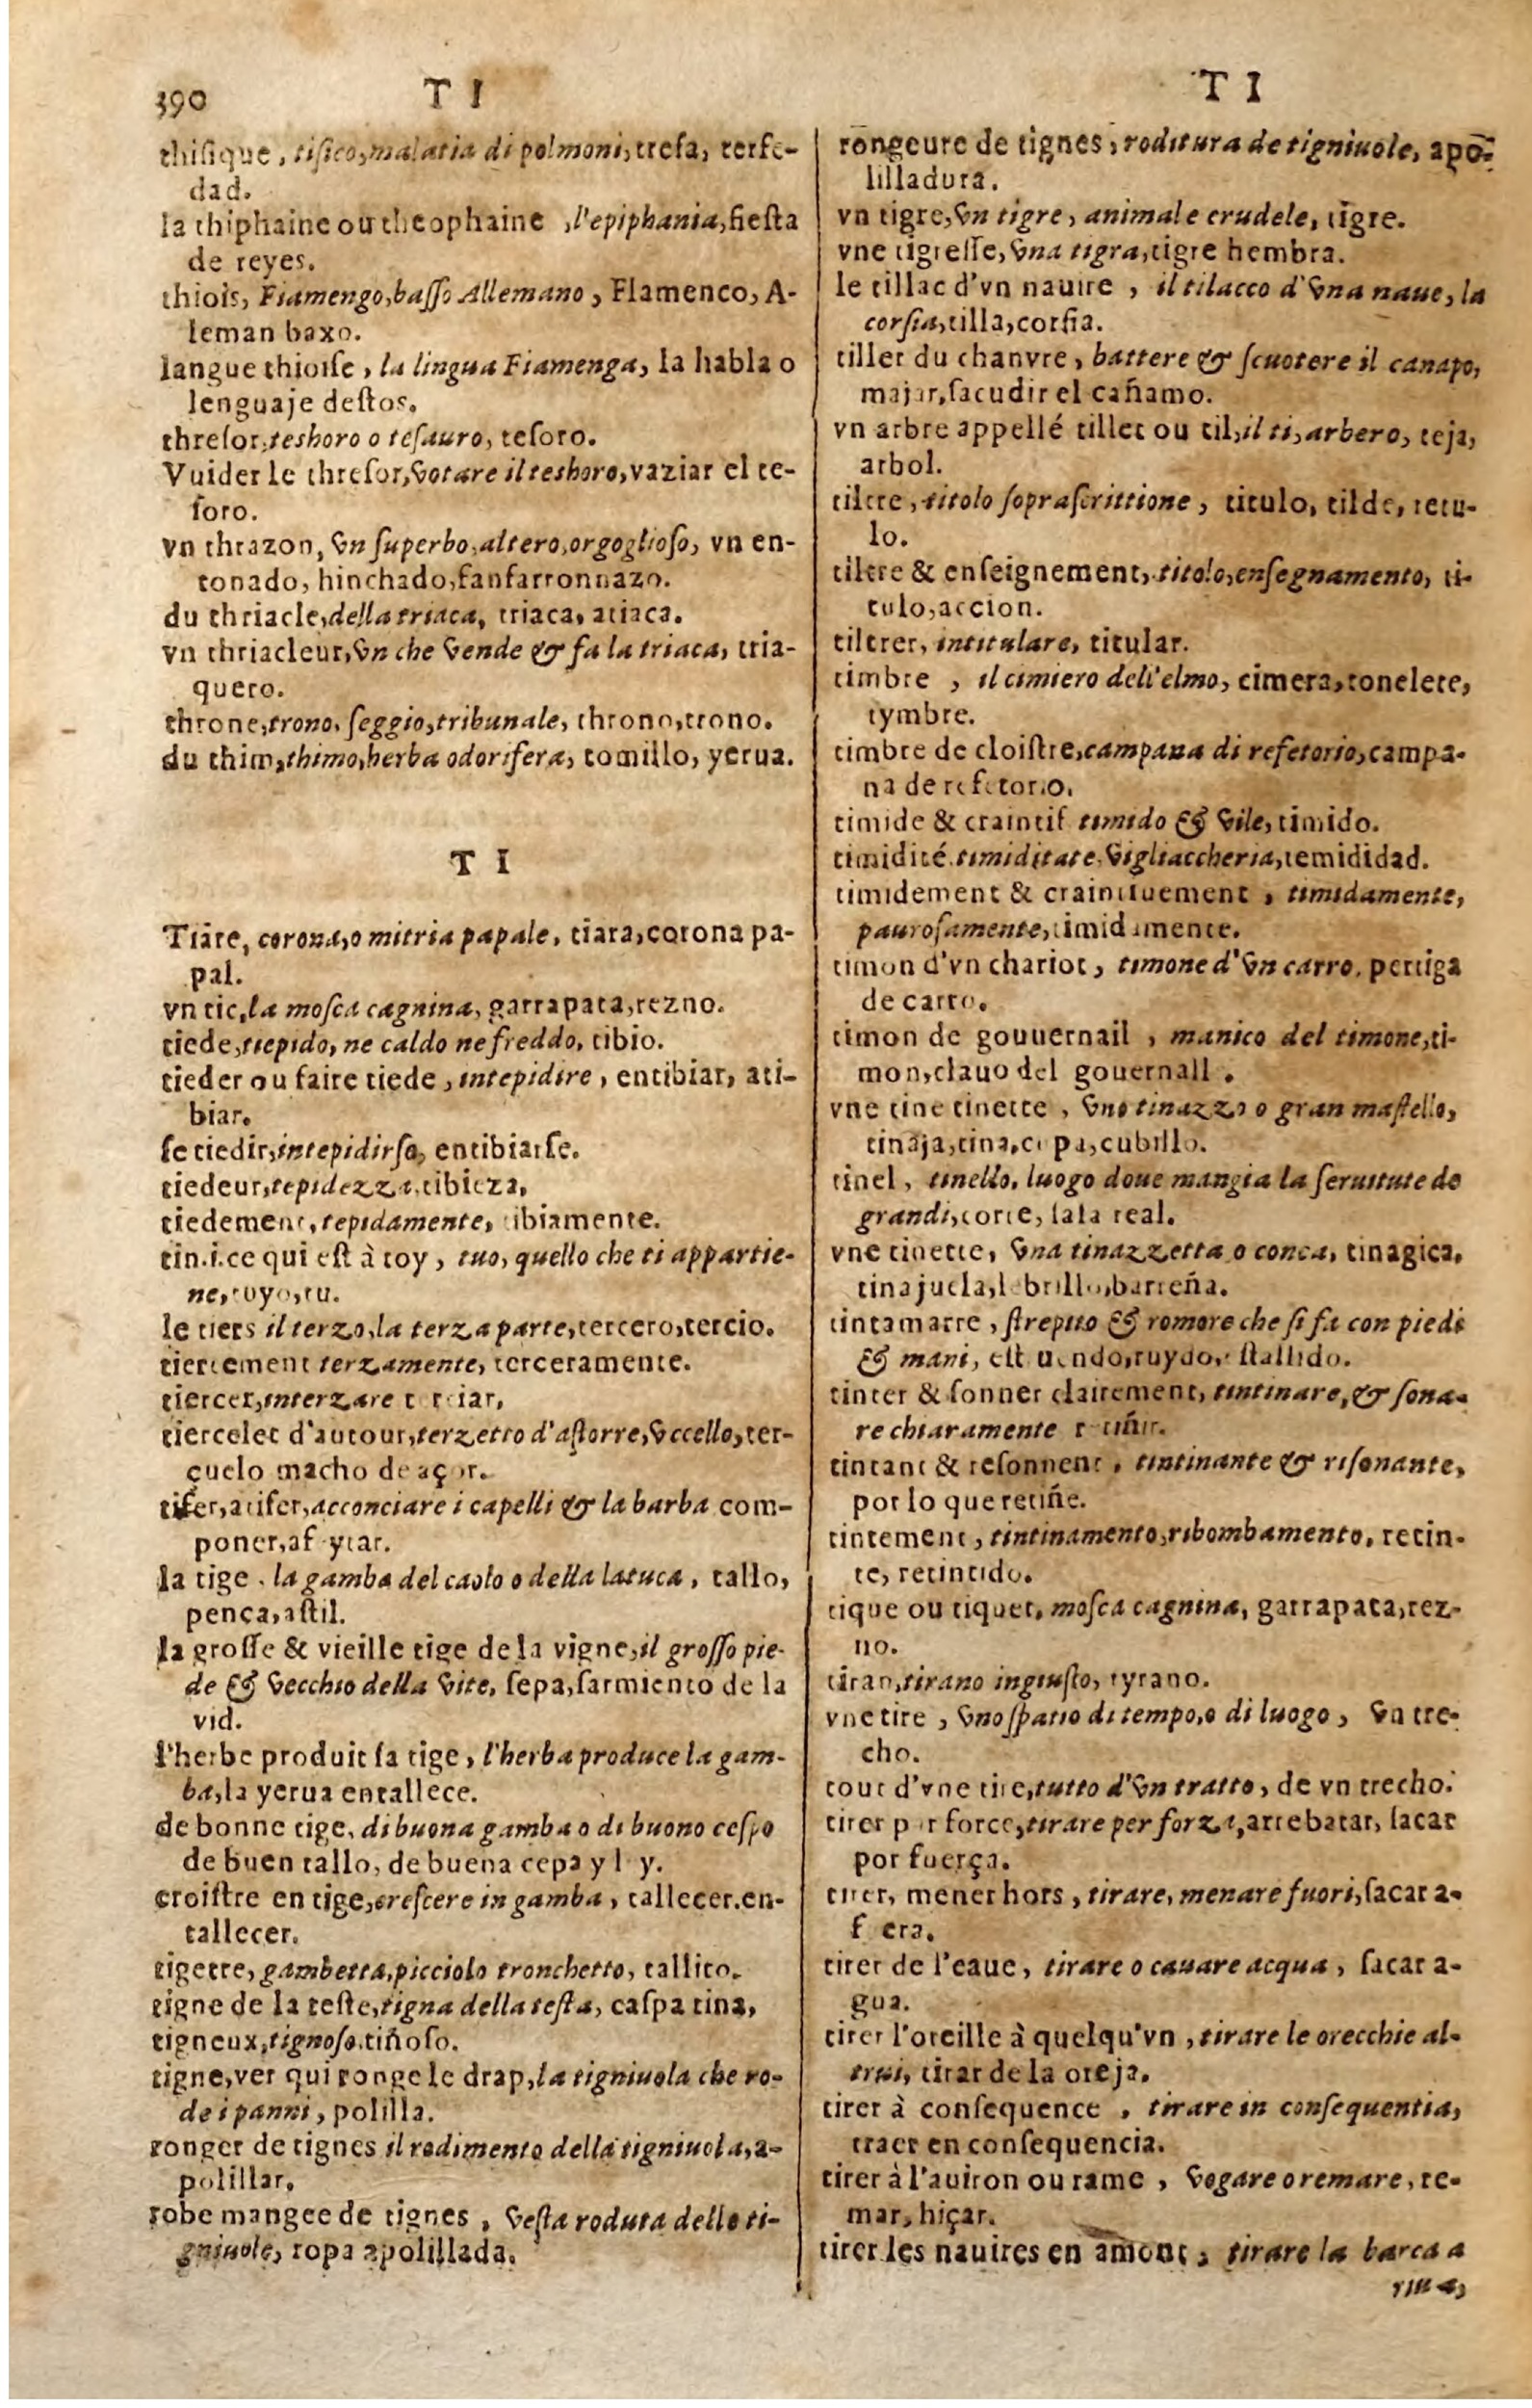 390
T I
thiſique, tiſico, malatia di polmoni, treſa, terſe-
dad.
la thiphaine ou theophaine, l'epiphania, fieſta
de reyes.
thiois, Fiamengo, baſſo Allemano, Flamenco, A-
leman baxo.
langue thioiſe, la lingua Fiamenga, la habla o
lenguaje deſtos.
threſor, teshoro o teſauro, teſoro.
Vuider le threſor, votare il teshoro, vaziar el te-
ſoro.
vn thrazon, vn ſuperbo, altero, orgoglioſo, vn en-
tonado, hinchado, fanfarronnazo.
du thriacle, della triaca, triaca, atiaca.
vn thriacleur, vn che vende & fa la triaca, tria-
quero.
throne, trono, ſeggio, tribunale, throno, trono.
du thim, thimo, herba odorifera, tomillo, yerua.
T I
Tiare, corona, o mitria papale, tiara, corona pa-
pal.
vn tic, la moſca cagnina, garrapata, rezno.
tiede, tiepido, ne caldo ne freddo, tibio.
tieder ou faire tiede, intepidire, entibiar, ati-
biar.
ſe tiedir, intepidirſo, entibiarſe.
tiedeur, tepidezza, tibieza.
tiedement, tepidamente, tibiamente.
tin.i.ce qui eſt à toy, tuo, quello che ti appartie-
ne, tuyo, tu.
le tiers il terzo, la terza parte, tercero, tercio.
tiercement terzamente, terceramente.
tiercer, interzare terciar.
tiercelet d'autour, terzetto d'aſtorre, vccello, ter-
çuelo macho de açor.
tifer, atifer, acconciare i capelli & la barba com-
poner, afeytar.
la tige, la gamba del caolo o della latuca, tallo,
penca, aſtil.
la groſſe & vieille tige de la vigne, il groſſo pie-
de & vecchio della vite, ſepa, ſarmiento de la
vid.
l'herbe produit ſa tige, l'herba produce la gam-
ba, la yerua entallece.
de bonne tige, di buona gamba o di buono ceſpo
de buen tallo, de buena cepa y ley.
croiſtre en tige, creſcere in gamba, tallecer, en-
tallecer.
tigette, gambetta, picciolo tronchetto, tallito.
tigne de la teſte, tigna della teſta, caſpa tina,
tigneux, tignoſo, tiñoſo.
tigne, ver qui ronge le drap, la tigniuola che ro-
de i panni, polilla.
ronger de tignes il rodimento della tigniuola, a-
polillar.
robe mangee de tignes, veſta roduta delle ti-
gniuole, ropa apolillada.
T I
rongeure de tignes, roditura de tigniuole, apo-
lilladura.
vn tigre, vn tigre, animale crudele, tigre.
vne tigreſſe, vna tigra, tigre hembra.
le tillac d'vn nauire, il tilacco d'vna naue, la
corſia, tilla, corſia.
tiller du chanvre, battere & ſcuotere il canapo,
majar, ſacudir el cañamo.
vn arbre appellé tillet ou til, il ti, arbero, teja,
arbol.
tiltre, titolo ſopraſcrittione, titulo, tilde, retu-
lo.
tiltre & enſeignement, titolo, enſegnamento, ti-
tulo, accion.
tiltrer, intitulare, titular.
timbre, il cimiero dell'elmo, cimera, tonelete,
tymbre.
timbre de cloiſtre, campana di refetorio, campa-
na de refetorio.
timide & craintif timido & vile, timido.
timidité timiditate, vigliaccheria, temididad.
timidement & craintiuement, timidamente,
pauroſamente, timidamente.
timon d'vn chariot, timone d'vn carro, pertiga
de carro.
timon de gouuernail, manico del timone, ti-
mon, clauo del gouernall.
vne tine tinette, vno tinazzo o gran maſtello,
tinaja, tina, cepa, cubillo.
tinel, tinello, luogo doue mangia la ſeruitute de
grandi, corte, ſala real.
vne tinette, vna tinazzetta o conca, tinagica,
tinajuela, lebrillo, barreña.
tintamarre, ſtrepito & romore che ſi fa con piedi
& mani, eſtruendo, ruydo, eſtallido.
tinter & ſonner clairement, tintinare, & ſona-
re chiaramente retiñir.
tintant & reſonnent, tintinante & riſonante,
por lo que retiñe.
tintement, tintinamento, ribombamento, retin-
te, retintido.
tique ou tiquet, moſca cagnina, garrapata, rez-
no.
tiran, tirano ingiuſto, tyrano.
vne tire, vno ſpatio di tempo, o di luogo, vn tre-
cho.
tout d'vne tire, tutto d'vn tratto, de vn trecho.
tirer par force, tirare per forza, arrebatar, ſacar
por fuerça.
tirer, mener hors, tirare, menare fuori, ſacar a-
fuera.
tirer de l'eaue, tirare o cauare acqua, ſacar a-
gua.
tirer l'oreille à quelqu'vn, tirare le orecchie al-
trui, tirar de la oreja.
tirer à conſequence, tirare in conſequentia,
traer en conſequencia.
tirer à l'auiron ou rame, vogare o remare, re-
mar, hiçar.
tirer les nauires en amont, tirare la barca a
riua,